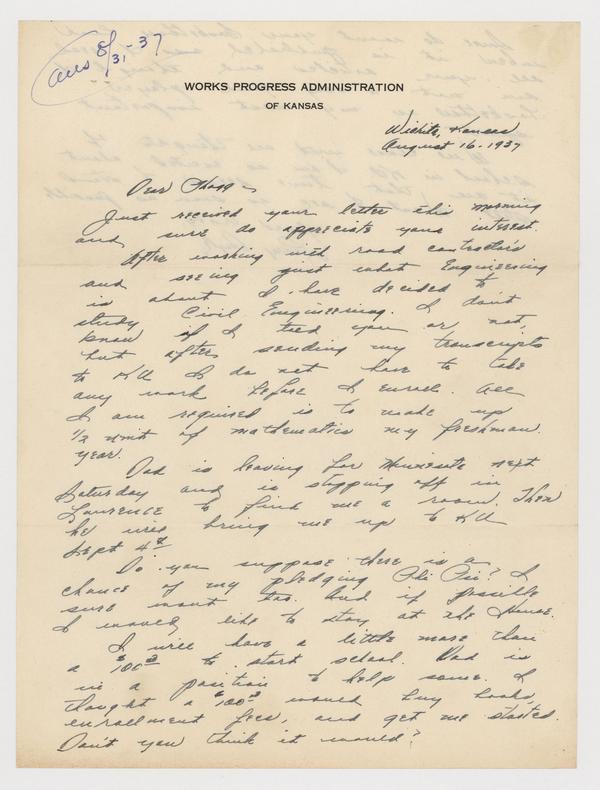 ans 8/31-37
WORKS PROGRESS ADMINISTRATION
OF KANSAS
Wichita, Kansas
August 16-1937
Dear Phogg -
Just received your letter this morning
and sure do appreciate your interest.
After working with road contractors
and seeing just what Engineering
is about I have decided to
study Civil Engineering. I don't
know if I told you or not,
but after sending my transcripts
to KU I do not have to take
any work before I enroll. All
I am required is to make up
1/2 unit of mathematics my freshman
year.
Dad is leaving for Minnesota next
Saturday and is stopping off in
Lawrence to find me a room. Then
he will bring me up to KU
Sept 4th
Do you suppose there is a
chance of my pledging Phi Psi? I
sure want too. And if possible
I would like to stay at the House.
I will have a little more than
a $100 to start school. Dad is
in a position to help some. I
thought a $100 would buy books,
enrollment fees, and get me started.
Don't you think it would?